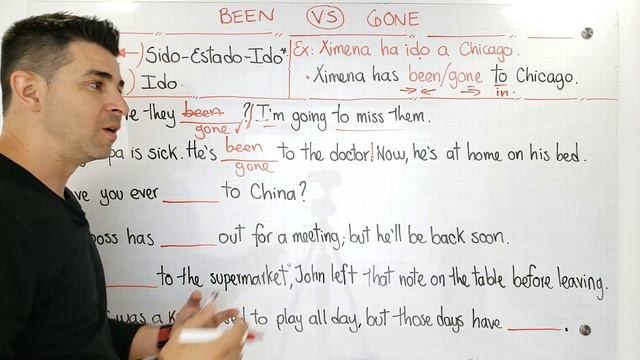 BEEN VS GONE
Sido-Estado-Ido*
Ex: Ximena ha ido a Chicago.
Ido.
• Ximena has been/gone to Chicago.
in.
they been ? I'm going to miss them.
gone ✓
is sick. He's been to the doctor! Now, he's at home on his bed.
gone
you ever ______ to China?
boss has ______ out for a meeting, but he'll be back soon.
______ to the supermarket", John left that note on the table before leaving.
was a to play all day, but those days have ______.